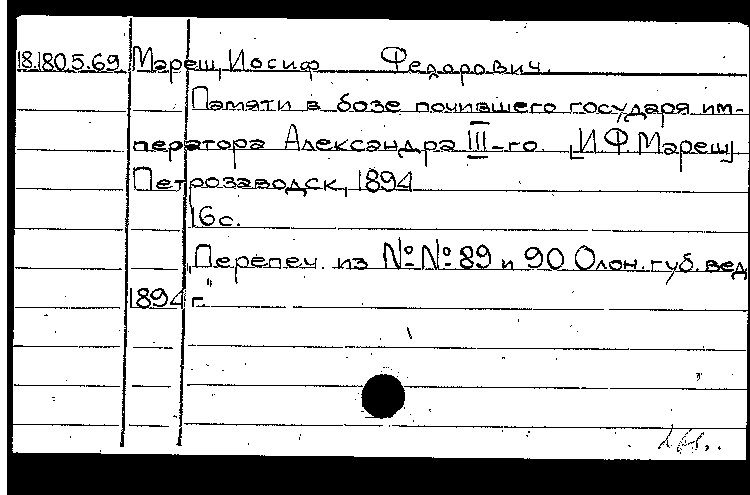 18.180.5.69 Мареш, Иосиф Федорович.
Памяти в бозе почившего государя им-
ператора Александра III-го. [И.Ф.Мареш]
Петрозаводск, 1894
16 с.
"Перепеч. из №№ 89 и 90 Олон. губ. вед
1894 г."